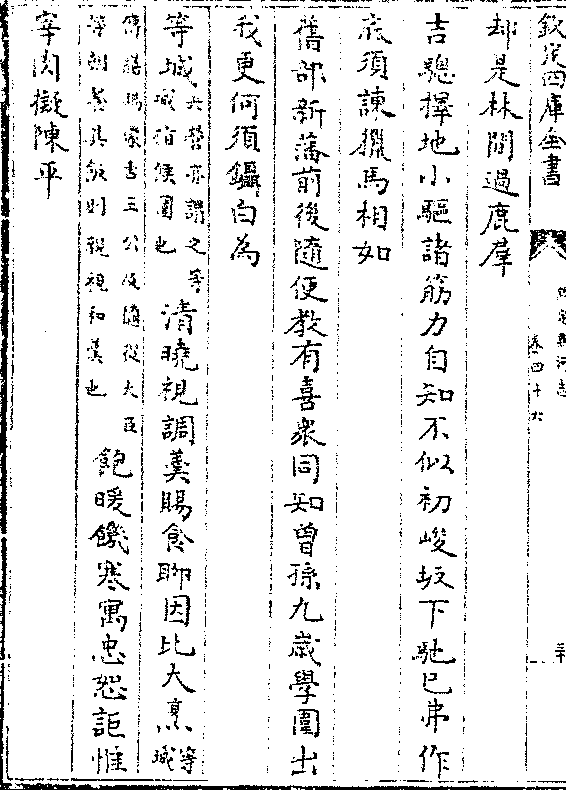 欽定四庫全書
卷四十六
却是林間過鹿羣
吉驄擇地小驅諸筋力自知不似初峻坂下馳已弗作
底須諫獵馬相如
舊部新藩前後隨便教有喜衆同知曾孫九歲學圍出
我更何須鑷白為
等城大營亦謂之等城猶候圍也清曉視調羹賜食聊因比大烹等城
傳膳賜蒙古王公及隨從大臣等朝餐具飯則親視和羹也飽暖饑寒寓忠恕詎惟
宰肉擬陳平